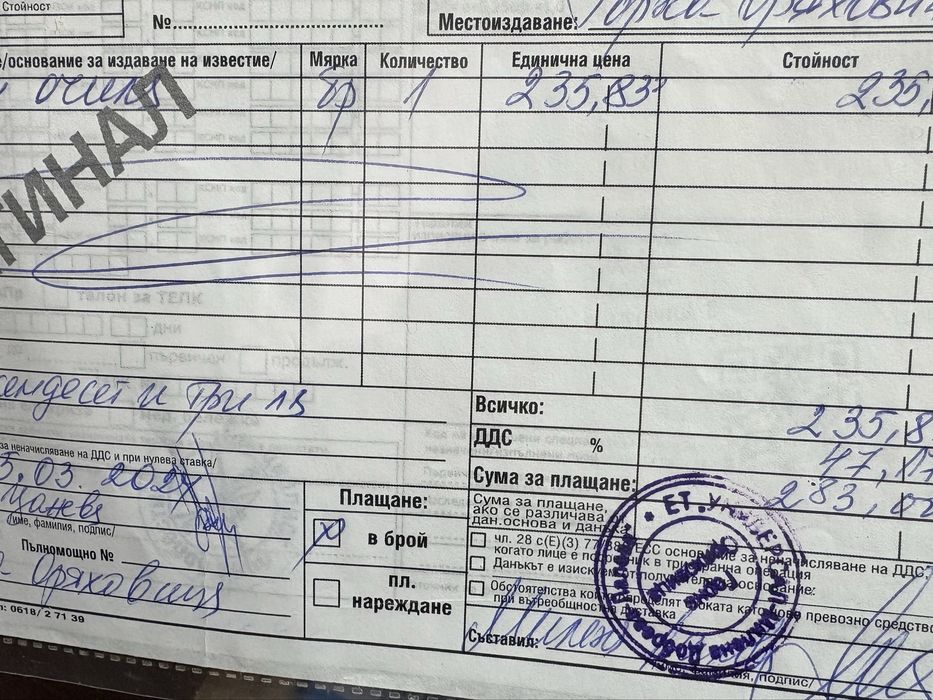 Стойност
№
Местоиздаване: Горна Оряховица
/основание за издаване на известие/ Мярка Количество Единична цена Стойност
очила бр 1 235,83 235,
ГИНАЛ
талон за ТЕЛК
дни
първичен продълж.
семдесет и три лв
Всичко: 235,8
за неначисляване на ДДС и при нулева ставка/
ДДС % 47,17
5.03.2024
Сума за плащане: 283,00
/име, фамилия, подпис/
Плащане:
Сума за плащане,
ако се различава
дан.основа и данъка
X в брой
чл. 28 с(Е)(3) 77/388 ЕСС основание за неначисляване на ДДС:
когато лице е посредник в тристранна операция
Пълномощно №
Данъкът е изискуем от получателя, основание:
Оряховица
пл.
нареждане
Обстоятелства които определят стоката като ново превозно средство
при вътреобщностна доставка
н: 0618/ 2 71 39
Съставил:
фамилия, подпис/